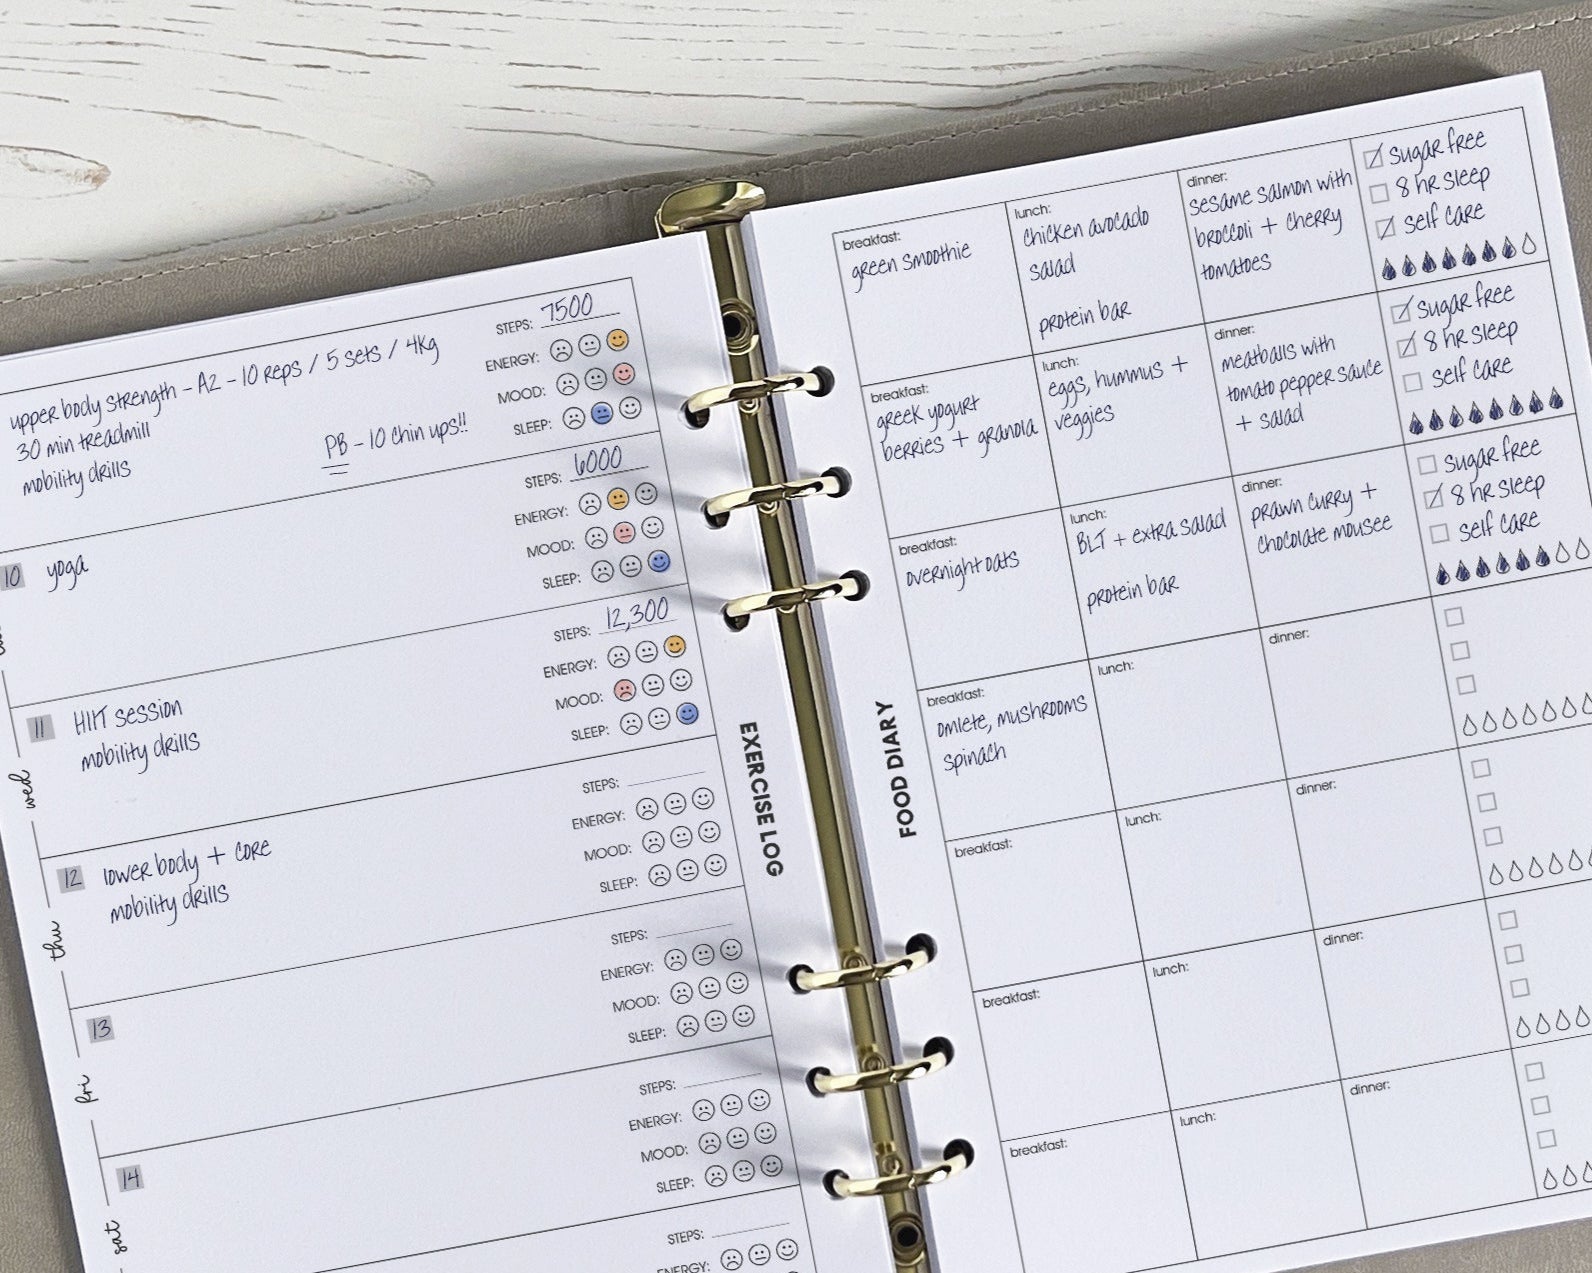 upper body strength - A2 - 10 reps / 5 sets / 4kg
30 min treadmill
mobility drills
PB - 10 chin ups!!
STEPS: 7500
ENERGY:
MOOD:
SLEEP:
10
yoga
STEPS: 6000
ENERGY:
MOOD:
SLEEP:
wed
11
HIIT session
mobility drills
STEPS: 12,300
ENERGY:
MOOD:
SLEEP:
thu
12
lower body + core
mobility drills
STEPS:
ENERGY:
MOOD:
SLEEP:
fri
13
STEPS:
ENERGY:
MOOD:
SLEEP:
sat
14
STEPS:
ENERGY:
MOOD:
SLEEP:
STEPS:
ENERGY:
EXERCISE LOG
FOOD DIARY
breakfast:
green smoothie
lunch:
chicken avocado
salad
protein bar
dinner:
sesame salmon with
broccoli + cherry
tomatoes
sugar free
8 hr sleep
self care
breakfast:
greek yogurt
berries + granola
lunch:
eggs, hummus +
veggies
dinner:
meatballs with
tomato pepper sauce
+ salad
sugar free
8 hr sleep
self care
breakfast:
overnight oats
lunch:
BLT + extra salad
protein bar
dinner:
prawn curry +
chocolate mousee
sugar free
8 hr sleep
self care
breakfast:
omlete, mushrooms
spinach
lunch:
dinner:
breakfast:
lunch:
dinner:
breakfast:
lunch:
dinner:
breakfast:
lunch:
dinner: